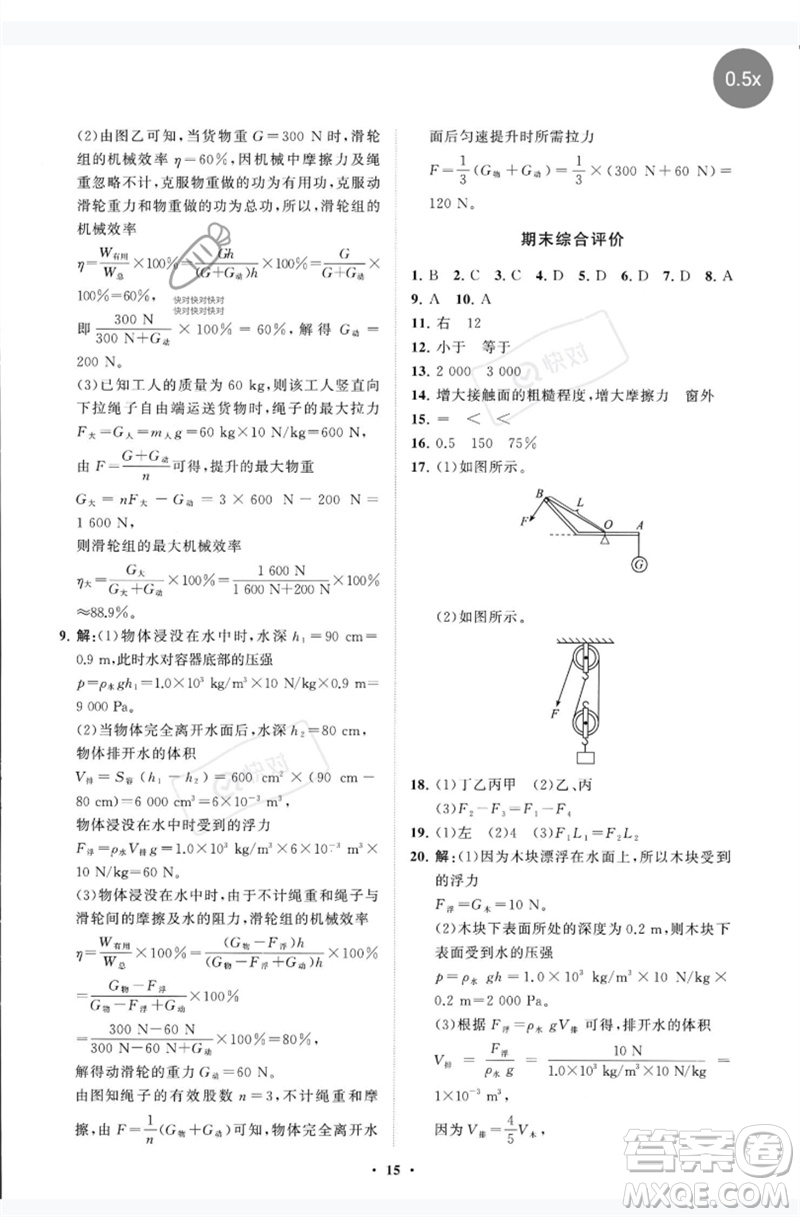 0.5x
(2)由图乙可知,当货物重 G=300 N时,滑轮
组的机械效率 η=60%,因机械中摩擦力及绳
重忽略不计,克服物重做的功为有用功,克服
滑轮重力和物重做的功为总功,所以,滑轮组的
机械效率
η=W有用/W总×100%=Gh/(G+G动)h×100%=G/(G+G动)×
100%=60%,
即 300 N/(300 N+G动)×100%=60%,解得 G动=
200 N。
(3)已知工人的质量为 60 kg,则该工人竖直向
下拉绳子自由端运送货物时,绳子的最大拉力
F大=G人=m人g=60 kg×10 N/kg=600 N,
由 F=(G+G动)/n 可得,提升的最大物重
G大=nF大-G动=3×600 N-200 N=
1 600 N,
则滑轮组的最大机械效率
η大=G大/(G大+G动)×100%=1 600 N/(1 600 N+200 N)×100%
≈88.9%。
9. 解:(1)物体浸没在水中时,水深 h₁=90 cm=
0.9 m,此时水对容器底部的压强
p=ρ水gh₁=1.0×10³ kg/m³×10 N/kg×0.9 m=
9 000 Pa。
(2)当物体完全离开水面后,水深 h₂=80 cm,
物体排开水的体积
V排=S容(h₁-h₂)=600 cm²×(90 cm-
80 cm)=6 000 cm³=6×10⁻³ m³,
物体浸没在水中时受到的浮力
F浮=ρ水V排g=1.0×10³ kg/m³×6×10⁻³ m³×
10 N/kg=60 N。
(3)物体浸没在水中时,由于不计绳重和绳子与
滑轮间的摩擦及水的阻力,滑轮组的机械效率
η=W有用/W总×100%=(G物-F浮)h/(G物-F浮+G动)h×100%
=(G物-F浮)/(G物-F浮+G动)×100%
=(300 N-60 N)/(300 N-60 N+G动)×100%=80%,
解得动滑轮的重力 G动=60 N。
由图知绳子的有效股数 n=3,不计绳重和摩
擦,由 F=1/n(G物+G动)可知,物体完全离开水
面后匀速提升时所需拉力
F=1/3(G物+G动)=1/3×(300 N+60 N)=
120 N。
期末综合评价
1. B 2. C 3. C 4. D 5. D 6. D 7. D 8. A
9. A 10. A
11. 右 12
12. 小于 等于
13. 2 000 3 000
14. 增大接触面的粗糙程度,增大摩擦力 窗外
15. = < <
16. 0.5 150 75%
17. (1)如图所示。
B L O A F G
(2)如图所示。
F
18. (1)丁乙丙甲 (2)乙、丙
(3)F₂-F₃=F₁-F₄
19. (1)左 (2)4 (3)F₁L₁=F₂L₂
20. 解:(1)因为木块漂浮在水面上,所以木块受到
的浮力
F浮=G木=10 N。
(2)木块下表面所处的深度为 0.2 m,则木块下
表面受到水的压强
p=ρ水 gh=1.0×10³ kg/m³×10 N/kg
×0.2 m=2 000 Pa。
(3)根据 F浮=ρ水 gV排 可得,排开水的体积
V排=F浮/ρ水 g=10 N/(1.0×10³ kg/m³×10 N/kg)=1×
10⁻³ m³,
因为 V排=4/5V木,
• 15 •
快对快对快对
快对快对快对
快对
快对
答案圈
MXQE.COM